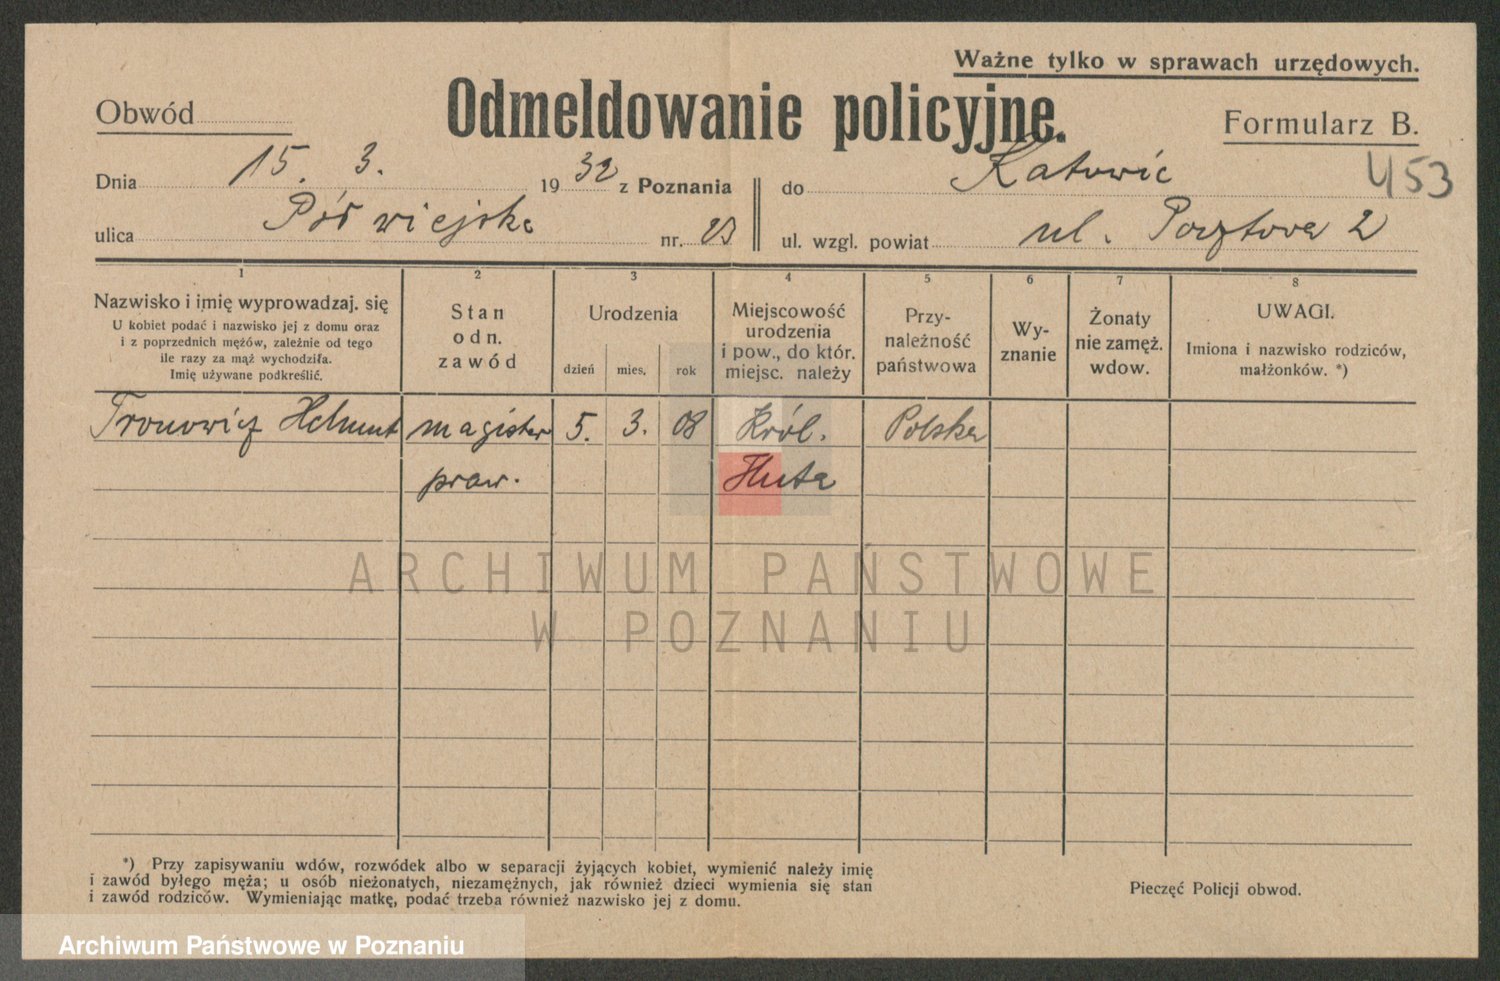 Ważne tylko w sprawach urzędowych.
Obwód
Odmeldowanie policyjne.
Formularz B.
453
Dnia 15. 3. 1932 z Poznania
do Katowic
ulica Półwiejska nr. 23
ul. wzgl. powiat ul. Pocztowa 2
1 2 3 4 5 6 7 8
Nazwisko i imię wyprowadzaj. się
U kobiet podać i nazwisko jej z domu oraz
i z poprzednich mężów, zależnie od tego
ile razy za mąż wychodziła.
Imię używane podkreślić.
Stan
odn.
zawód
Urodzenia
dzień mies. rok
Miejscowość
urodzenia
i pow., do któr.
miejsc. należy
Przy-
należność
państwowa
Wy-
znanie
Żonaty
nie zamęż.
wdow.
UWAGI.
Imiona i nazwisko rodziców,
małżonków. *)
Tronowicz Helmut magister 5. 3. 08 Król. Polska
praw. Huta
ARCHIWUM PAŃSTWOWE
W POZNANIU
*) Przy zapisywaniu wdów, rozwódek albo w separacji żyjących kobiet, wymienić należy imię
i zawód byłego męża; u osób nieżonatych, niezamężnych, jak również dzieci wymienia się stan
i zawód rodziców. Wymieniając matkę, podać trzeba również nazwisko jej z domu.
Pieczęć Policji obwod.
Archiwum Państwowe w Poznaniu